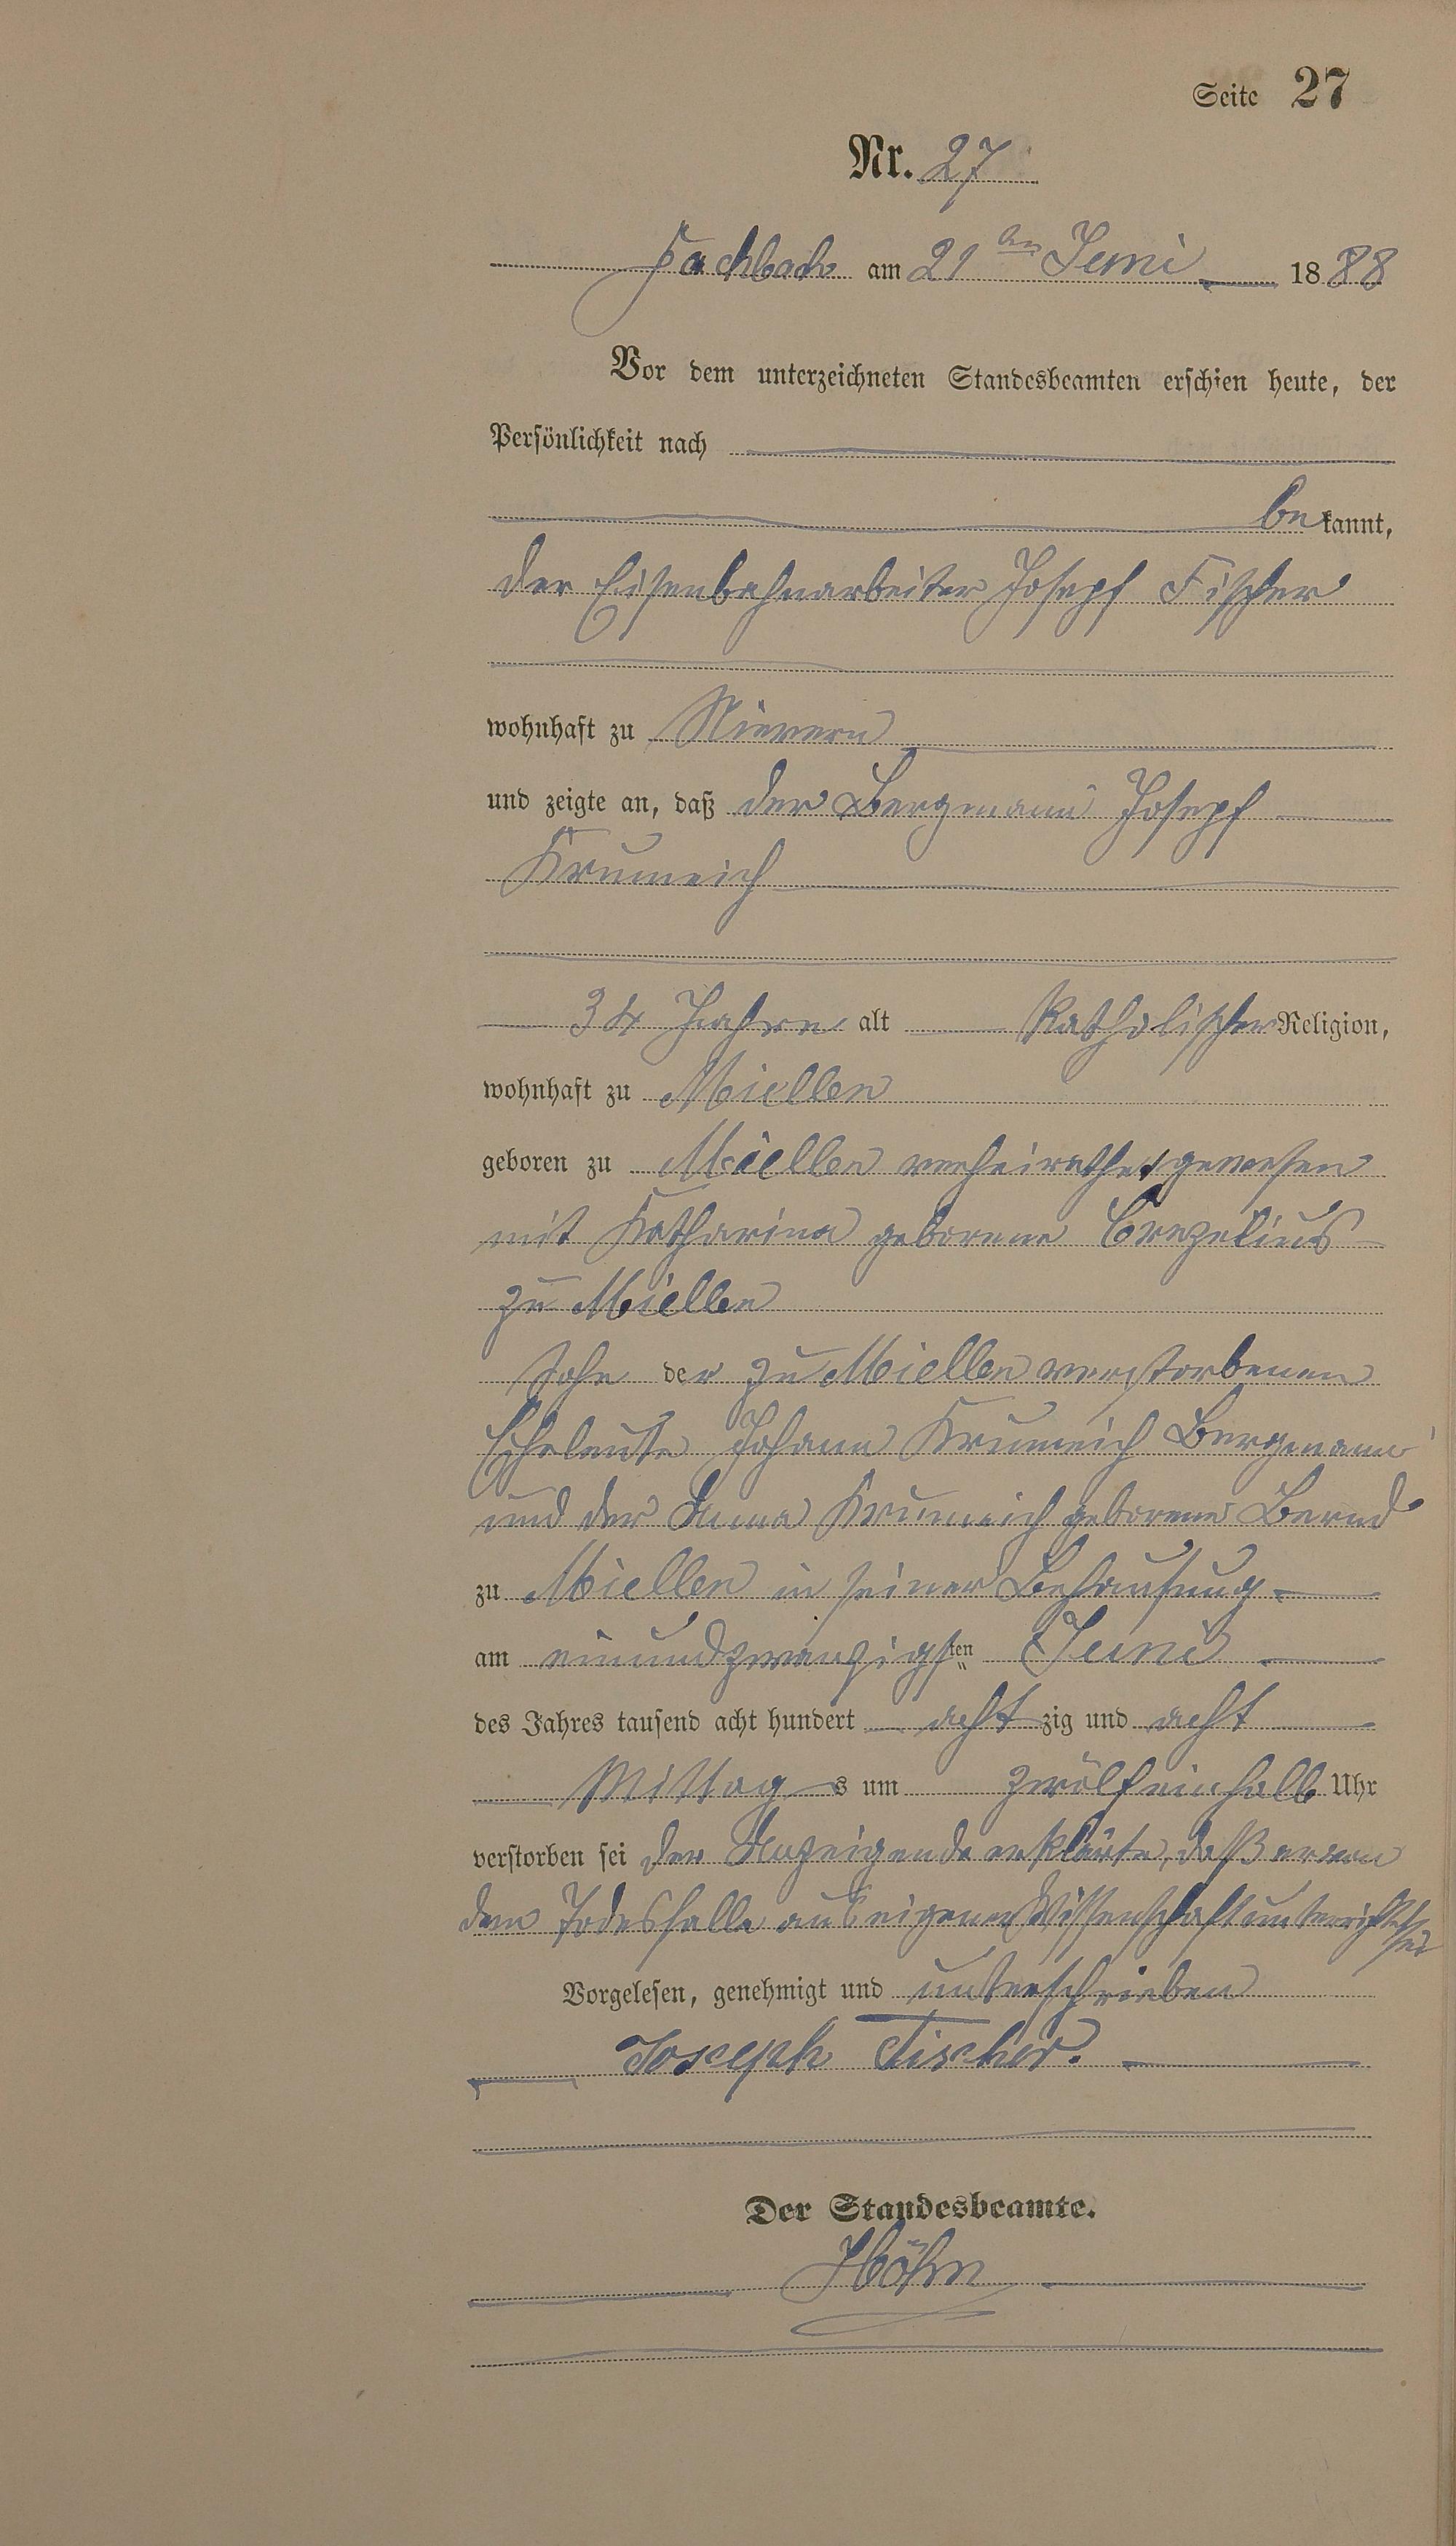 Seite 27
Nr. 27
Fachbach am 21ten Juni 1888
Vor dem unterzeichneten Standesbeamten erschien heute, der
Persönlichkeit nach
bekannt,
der Eisenbahnarbeiter Joseph Fischer
wohnhaft zu Nievern
und zeigte an, daß der Bergmann Joseph
Krumeich
34 Jahre alt Katholischer Religion,
wohnhaft zu Miellen
geboren zu Miellen verheirathet gewesen
mit Katharina geborene Crezelius
zu Miellen
Sohn der zu Miellen verstorbenen
Eheleute Johann Krumeich Bergmann
und der Anna Krumeich geborene Bernd
zu Miellen in seiner Behausung
am einundzwanzigsten Juni
des Jahres tausend acht hundert achtzig und acht
Mittags um zwölfeinhalb Uhr
verstorben sei der Anzeigende erklärte, daß er von
dem Todesfalle aus eigener Wissenschaft unterrichtet sei
Vorgelesen, genehmigt und unterschrieben
Joseph Fischer.
Der Standesbeamte.
Höhn